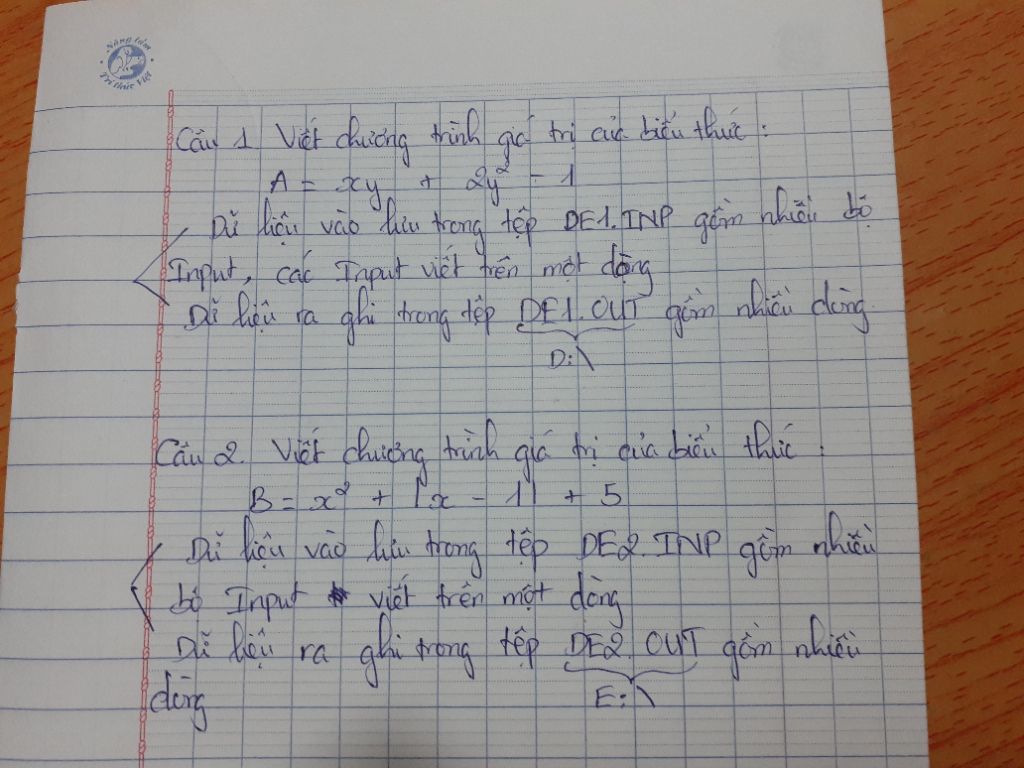 Nâng tầm
Trí thức Việt
Câu 1 Viết chương trình giá trị của biểu thức :
A = xy + 2y² - 1
Dữ liệu vào lưu trong tệp DE1.INP gồm nhiều bộ
Input, các Input viết trên một dòng
Dữ liệu ra ghi trong tệp DE1.OUT gồm nhiều dòng.
D:\
Câu 2. Viết chương trình giá trị của biểu thức :
B = x² + |x - 1| + 5
Dữ liệu vào lưu trong tệp DE2.INP gồm nhiều
bộ Input viết trên một dòng
Dữ liệu ra ghi trong tệp DE2.OUT gồm nhiều
dòng
E:\